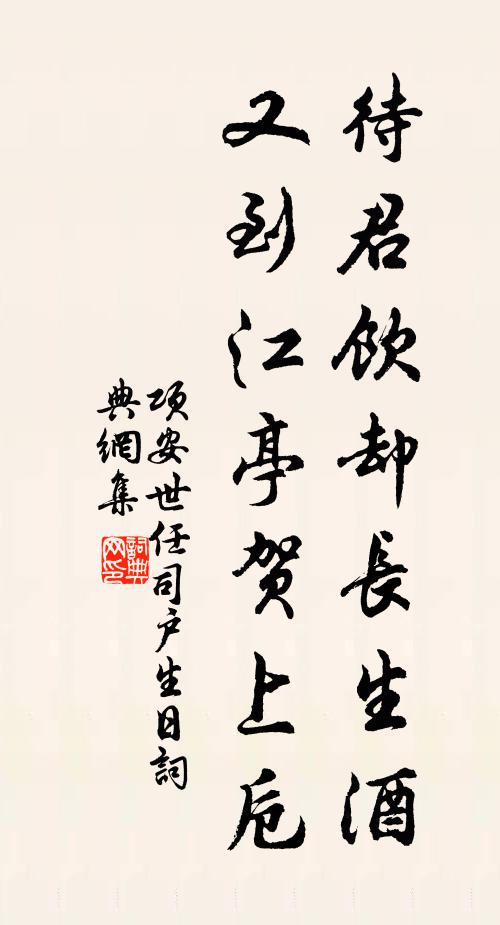 待君飲却長生酒
又到江亭贺上卮
項安世任司户生日詞
典網集
詞典
网印